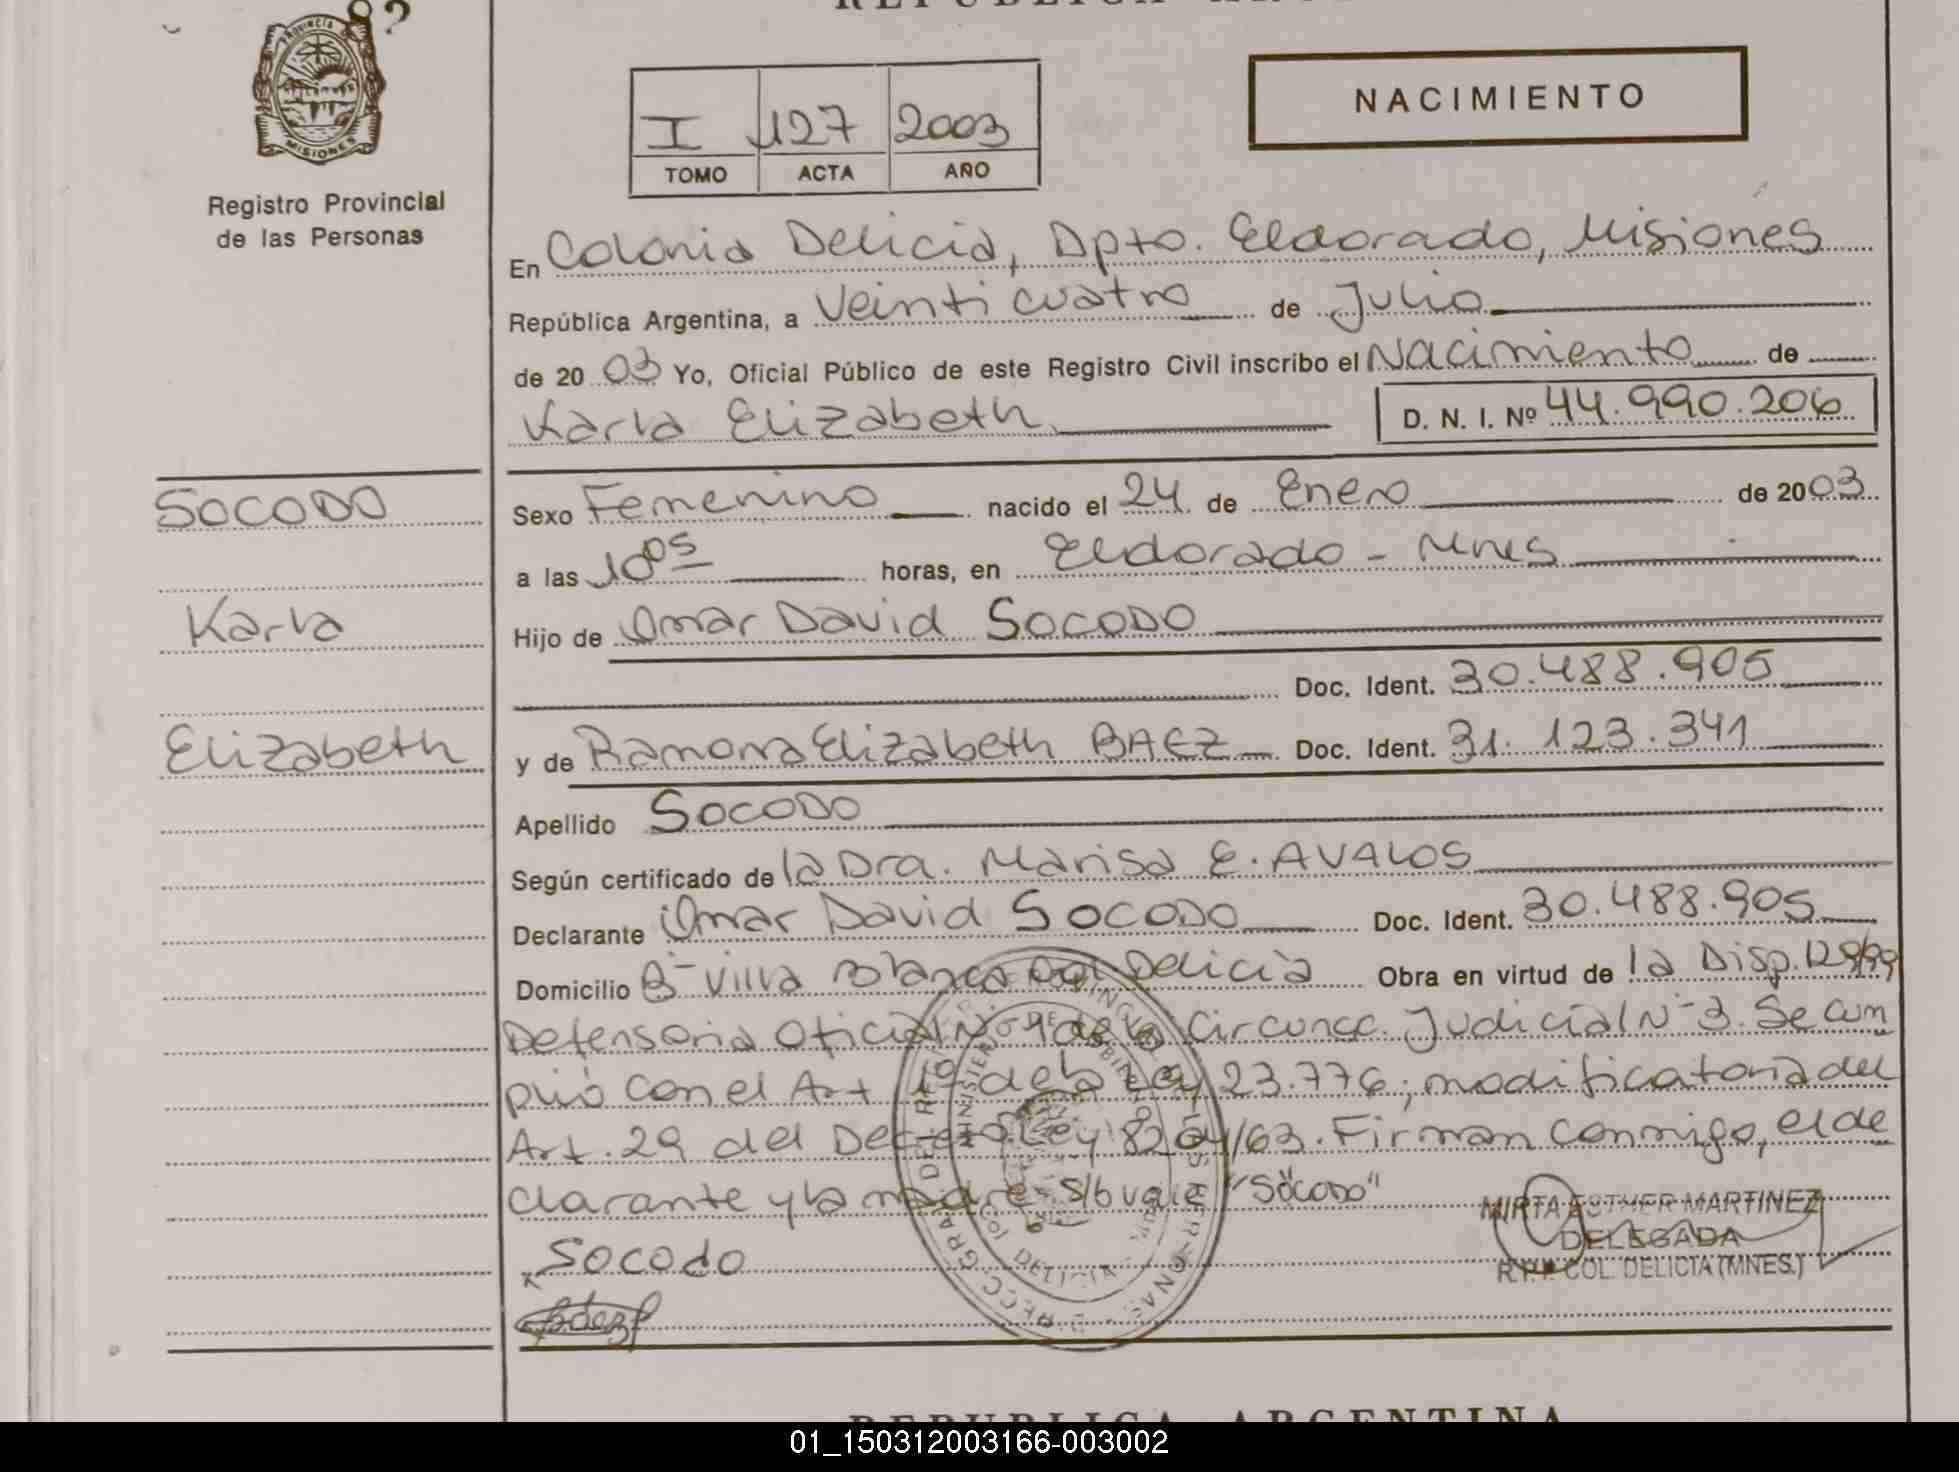 PROVINCIA
MISIONES
Registro Provincial
de las Personas
I 127 2003
TOMO ACTA AÑO
NACIMIENTO
En Colonia Delicia, Dpto. Eldorado, Misiones
República Argentina, a Veinticuatro de Julio
de 2003 Yo, Oficial Público de este Registro Civil inscribo el Nacimiento de
Karla Elizabeth D. N. I. Nº 44.990.206
SOCODO
Sexo Femenino nacido el 24 de Enero de 2003
a las 10 05 horas, en Eldorado - Mnes
Karla
Hijo de Omar David SOCODO
Doc. Ident. 30.488.905
Elizabeth
y de Ramona Elizabeth BAEZ Doc. Ident. 31.123.341
Apellido SOCODO
Según certificado de la Dra. Marisa E. AVALOS
Declarante Omar David SOCODO Doc. Ident. 30.488.905
Domicilio Bº Villa Blanca Col Delicia Obra en virtud de la Disp. 129/99
Defensoria Oficial Nº 1 de la Circunsc. Judicial Nº 3. Se cum
plió con el Art 1º de la Ley 23.776; modificatoria del
Art. 29 del Decreto Ley 8204/63. Firman conmigo, el de
clarante y la madre. S/b vale "SOCODO"
MIRTA ESTHER MARTINEZ
DELEGADA
R.P.P. COL. DELICIA (MNES.)
x Socodo
Baez
DELICIA
REPUBLICA ARGENTINA
01_150312003166-003002